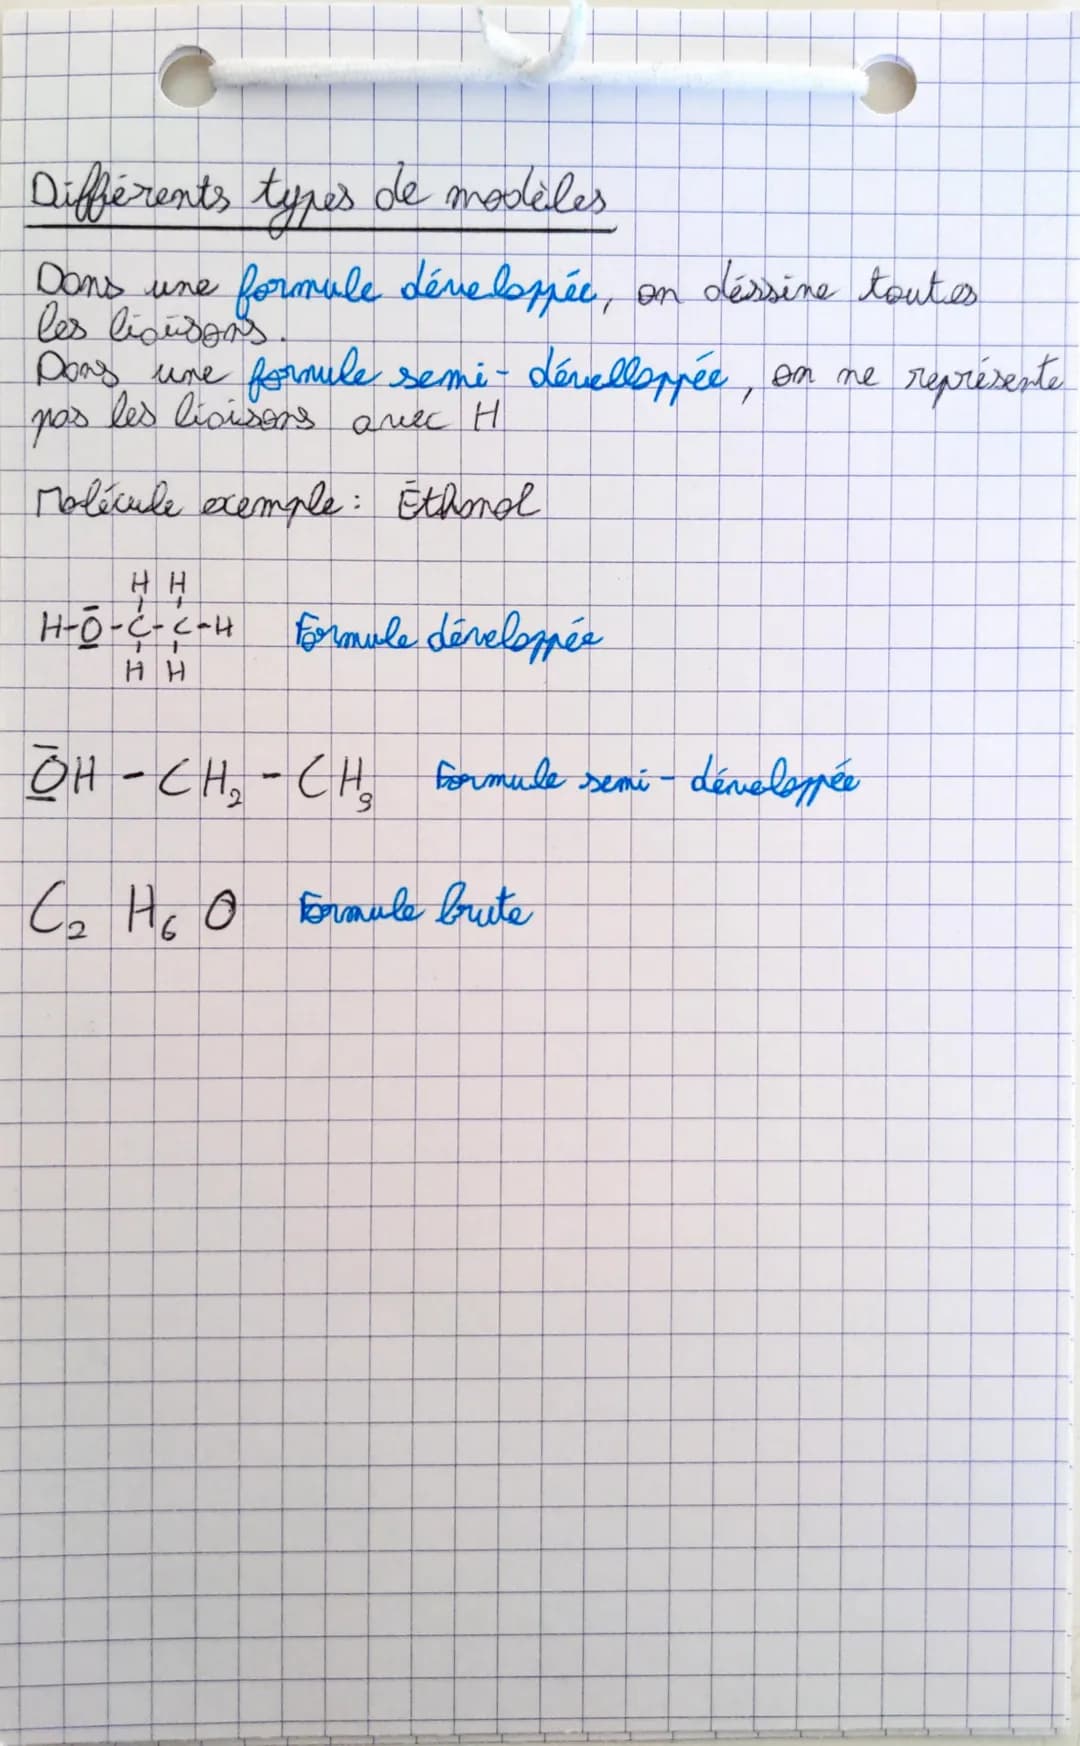 Différents types de modèles
Dans une formule développée, on déssine toutes
les liaisons.
Dans une formule semi-dévelloppée, on ne représente
pas les liaisons avec H
Molécule exemple: Éthanol
H H
H-O-C-C-H Formule développée
H H
OH - CH₂ - CH₃ Formule semi-développée
C₂ H₆ O Formule brute